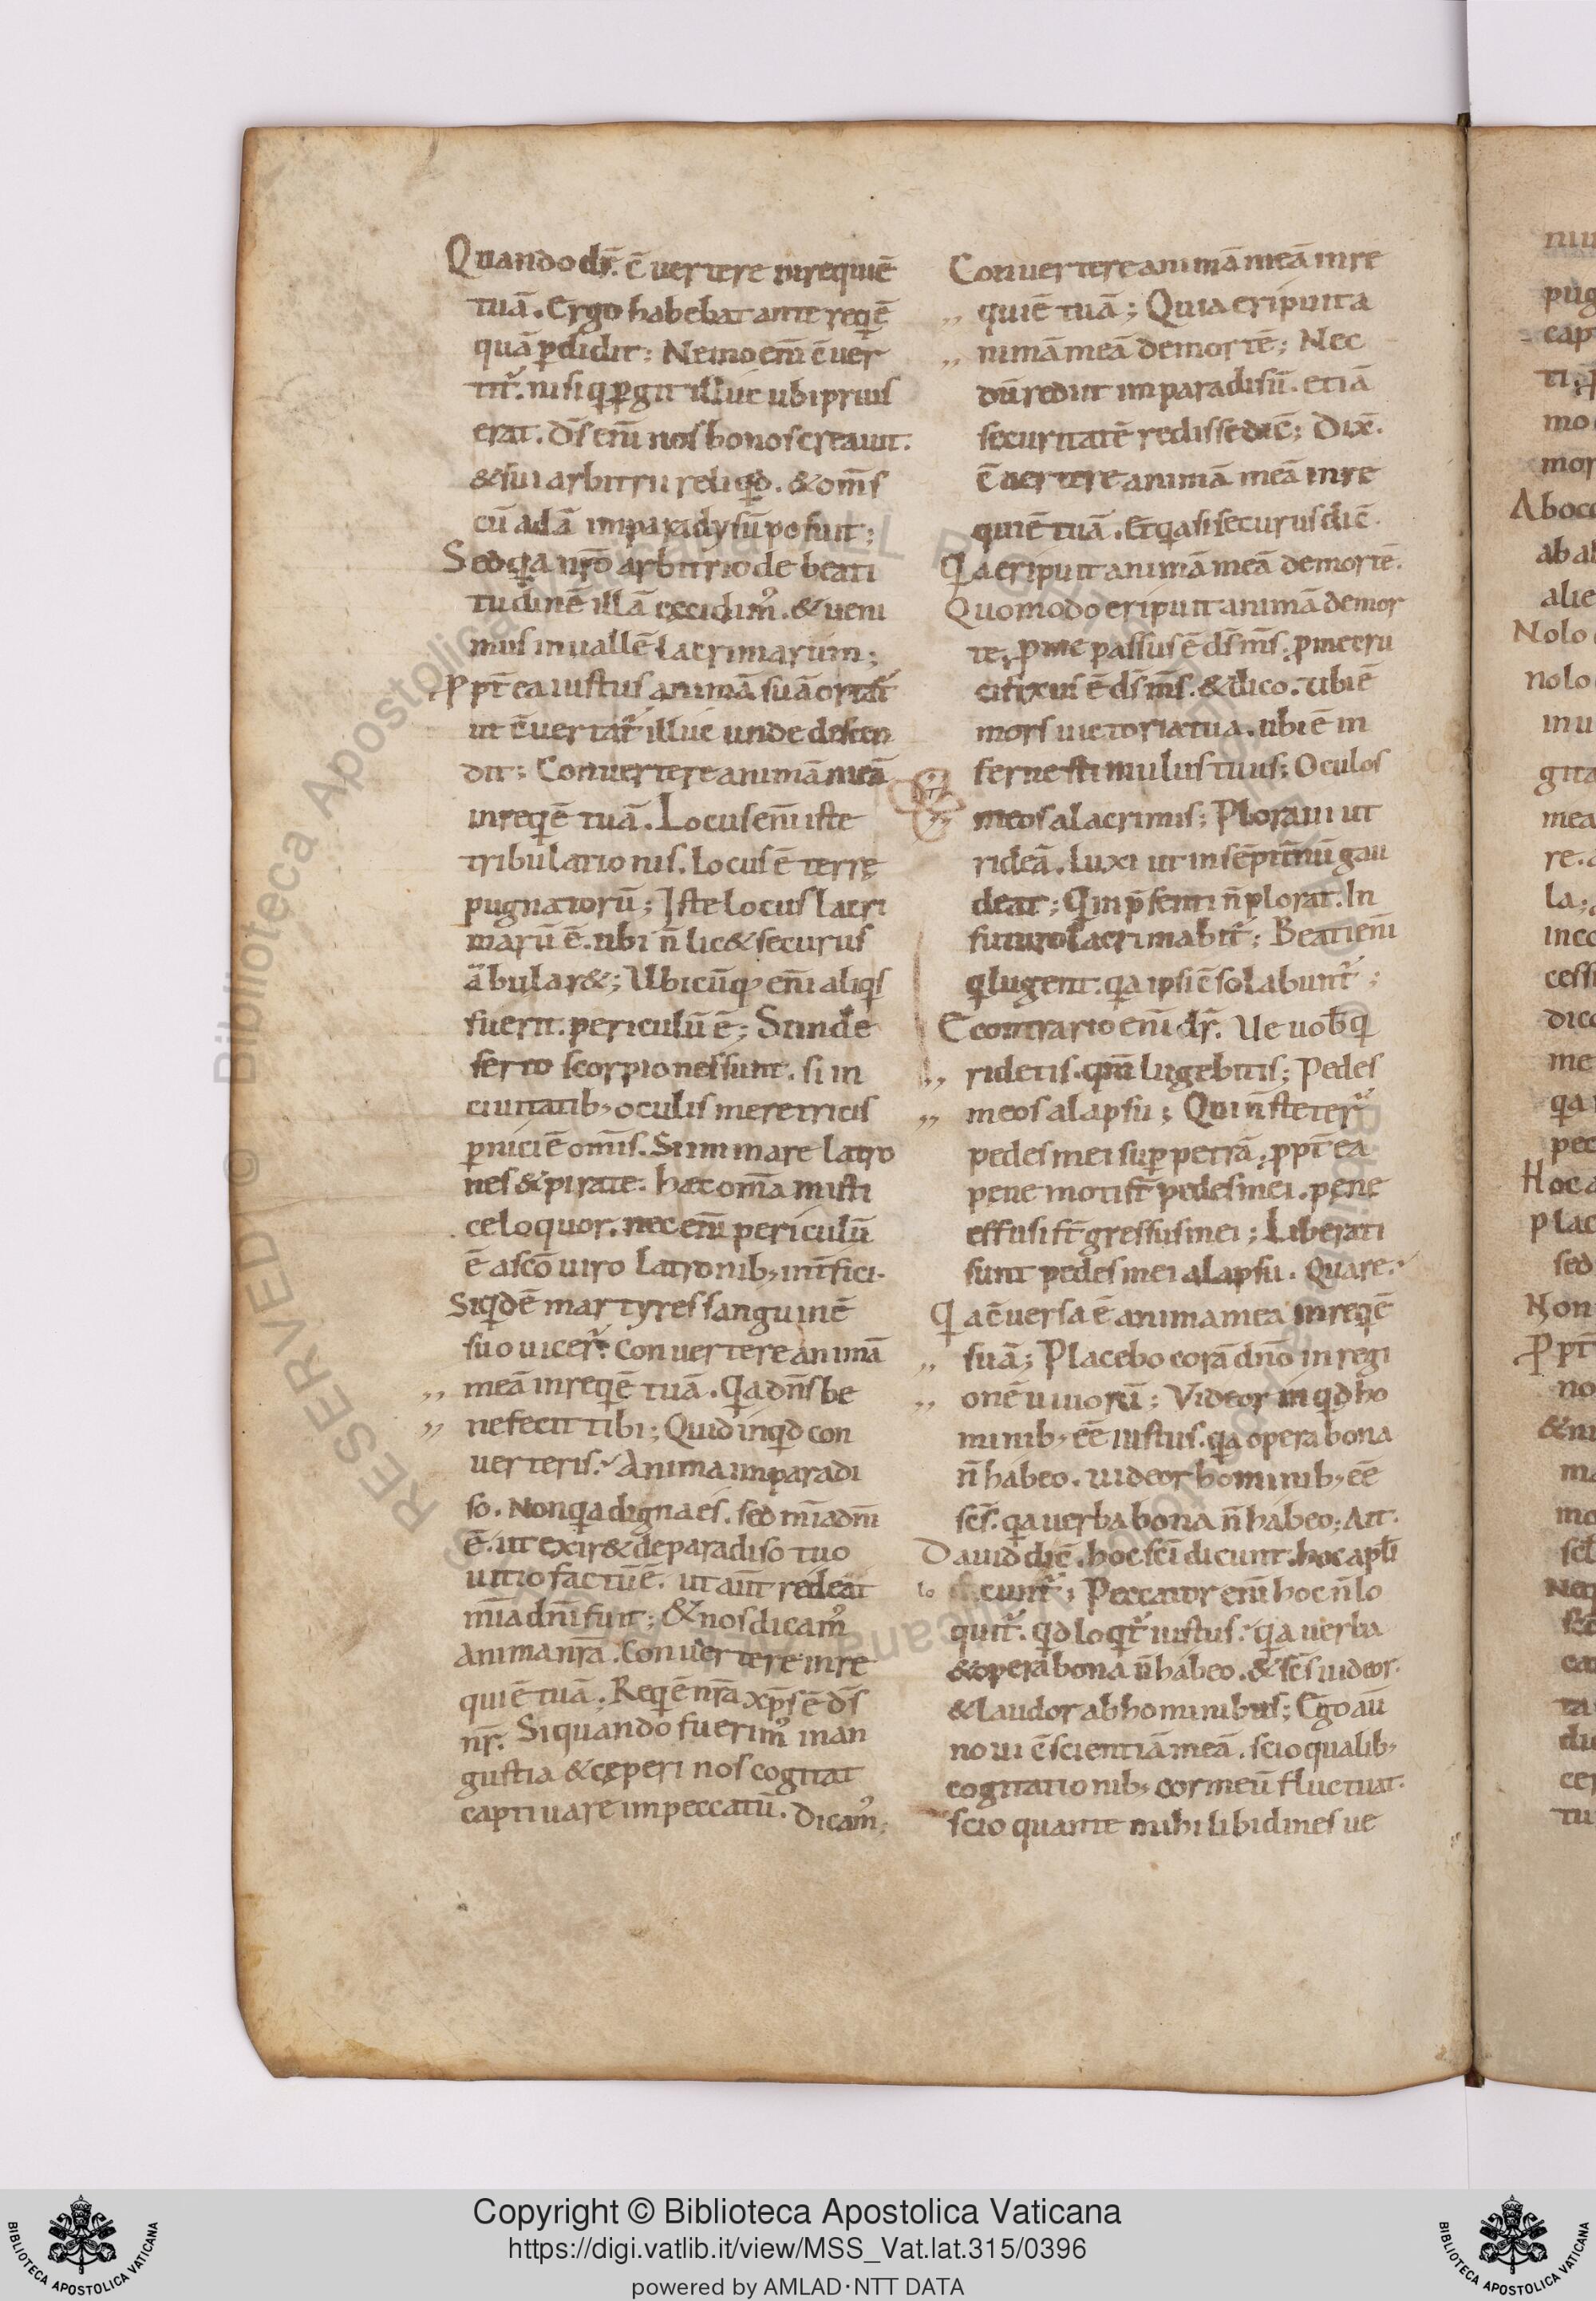 Quando dr̄. c̄ uertere inrequiē
tuā. Ergo habebat ante reqē
quā pdidit; Nemo em̄ c̄uer
titr̄. nisi q pgit illuc ubi prius
erat. Ds̄ em̄ nos bonos creauit.
& sui arbitrii reliqd. & om̄s
cū adā inparadysū posuit;
Sed qa nr̄o arbitrio de beati
tudinē illā excidim᷒. & ueni
mus in uallē lacrimarum;
ppt̄ea iustus animā suā ortat̄
ut c̄uertat̄ illuc unde descen
dit; Conuertere animā meā
inreqē tuā. Locus em̄ iste
tribulationis. locus ē terrę
pugnatorū; Iste locus lacri
marū ē. ubi n̄ lic& securus
ābular&; Ubicūq; em̄ aliqs
fuerit. periculū ē; Siinde
serto scorpiones sunt. si in
ciuitatib; oculis meretricis
pniciē om̄s. Si in mare latro
nes & pirate. hęc om̄a misti
ce loquor. nec em̄ periculū
ē asc̄o uiro latronib; int̄fici.
Siqdē martyres sanguinē
suo uicer̄. Conuertere animā
meā inreqē tuā. Qa dn̄s be
nefecit tibi; Quid inqd con
uerteris? Anima inparadi
so. Non qa digna es. sed mīa dn̄i
ē. ut exir& de paradiso tuo
uitio factū ē. ut aūt redeat
mīa dn̄i fuit; & nos dicam᷒
anima nr̄a. Conuertere inre
quiē tuā. Reqē nr̄a xp̄s ē ds̄
nr̄. Si quando fuerim᷒ inan
gustia & cęperi nos cogitat
captiuare inpeccatū. Dicam᷒;
Conuertere animā meā inre
quiē tuā; Quia eripuit a
nimā meā de mortē; Nec
dū rediit inparadisū. etiā
securitatē redisse dic̄; Dix̄.
C̄uertere animā meā inre
quiē tuā. Et qasi securus dic̄.
Qa eripuit animā meā de mortē.
Quomodo eripuit animā de mor
te; p me passus ē ds̄ ms̄. pme cru
cifixus ē ds̄ ms̄. & dico. Ubi ē
mors uictoria tua. ubi ē in
ferne stimulus tuus; Oculos
meos a lacrimis; Ploraui ut
rideā. luxi ut in sēpitn̄ū gau
deat; Q in p̄senti n̄ plorat. In
futuro lacrimabit̄; Beati em̄
q lugent. qa ipsi c̄solabunt̄;
E contrario em̄ dr̄. Ue uob̄ q
ridetis. qm̄ lugebitis; Pedes
meos a lapsu; Qui n̄ steter̄
pedes mei sup petrā; ppt̄ea
pene moti st̄ pedes mei. pene
effusi st̄ gressus mei; Liberati
sunt pedes mei a lapsu. Quare?
Qa c̄uersa ē anima mea inreqē
suā; Placebo corā dn̄o in regi
onē uiuorū; Videor inqd ho
minib; eē iustus. qa opera bona
n̄ habeo. uideor hominib; eē
sc̄s. qa uerba bona n̄ habeo; Ait.
Dauid dic̄. hoc sc̄i dicunt. hoc apl̄i
cunt̄; Peccator em̄ hoc n̄ lo
quit̄. qd loqt̄ iustus? qa uerba
& opera bona n̄ habeo. & sc̄s uideor.
& laudor ab hominibus; Ego aū
noui c̄scientiā meā. scio qualib;
cogitationib; cor meū fluctuat.
scio quante mihi libidines ue
Copyright © Biblioteca Apostolica Vaticana
https://digi.vatlib.it/view/MSS_Vat.lat.315/0396
powered by AMLAD·NTT DATA